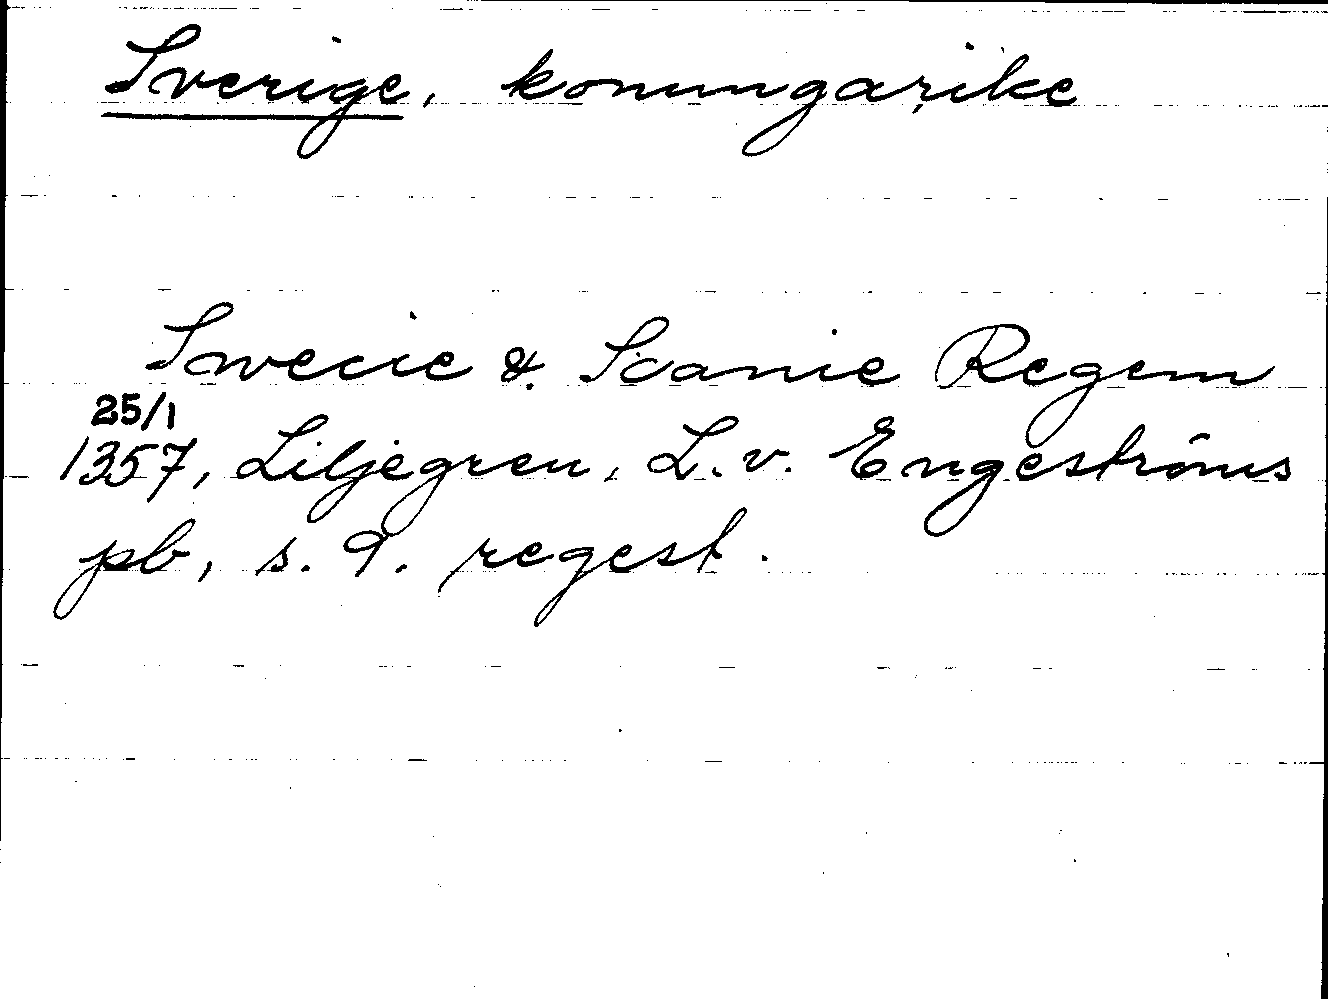 Sverige, konungarike
Swecie &. Scanie Regem
25/1
1357, Liljegren, L. v. Engeströms
pb, s. 9. regest.